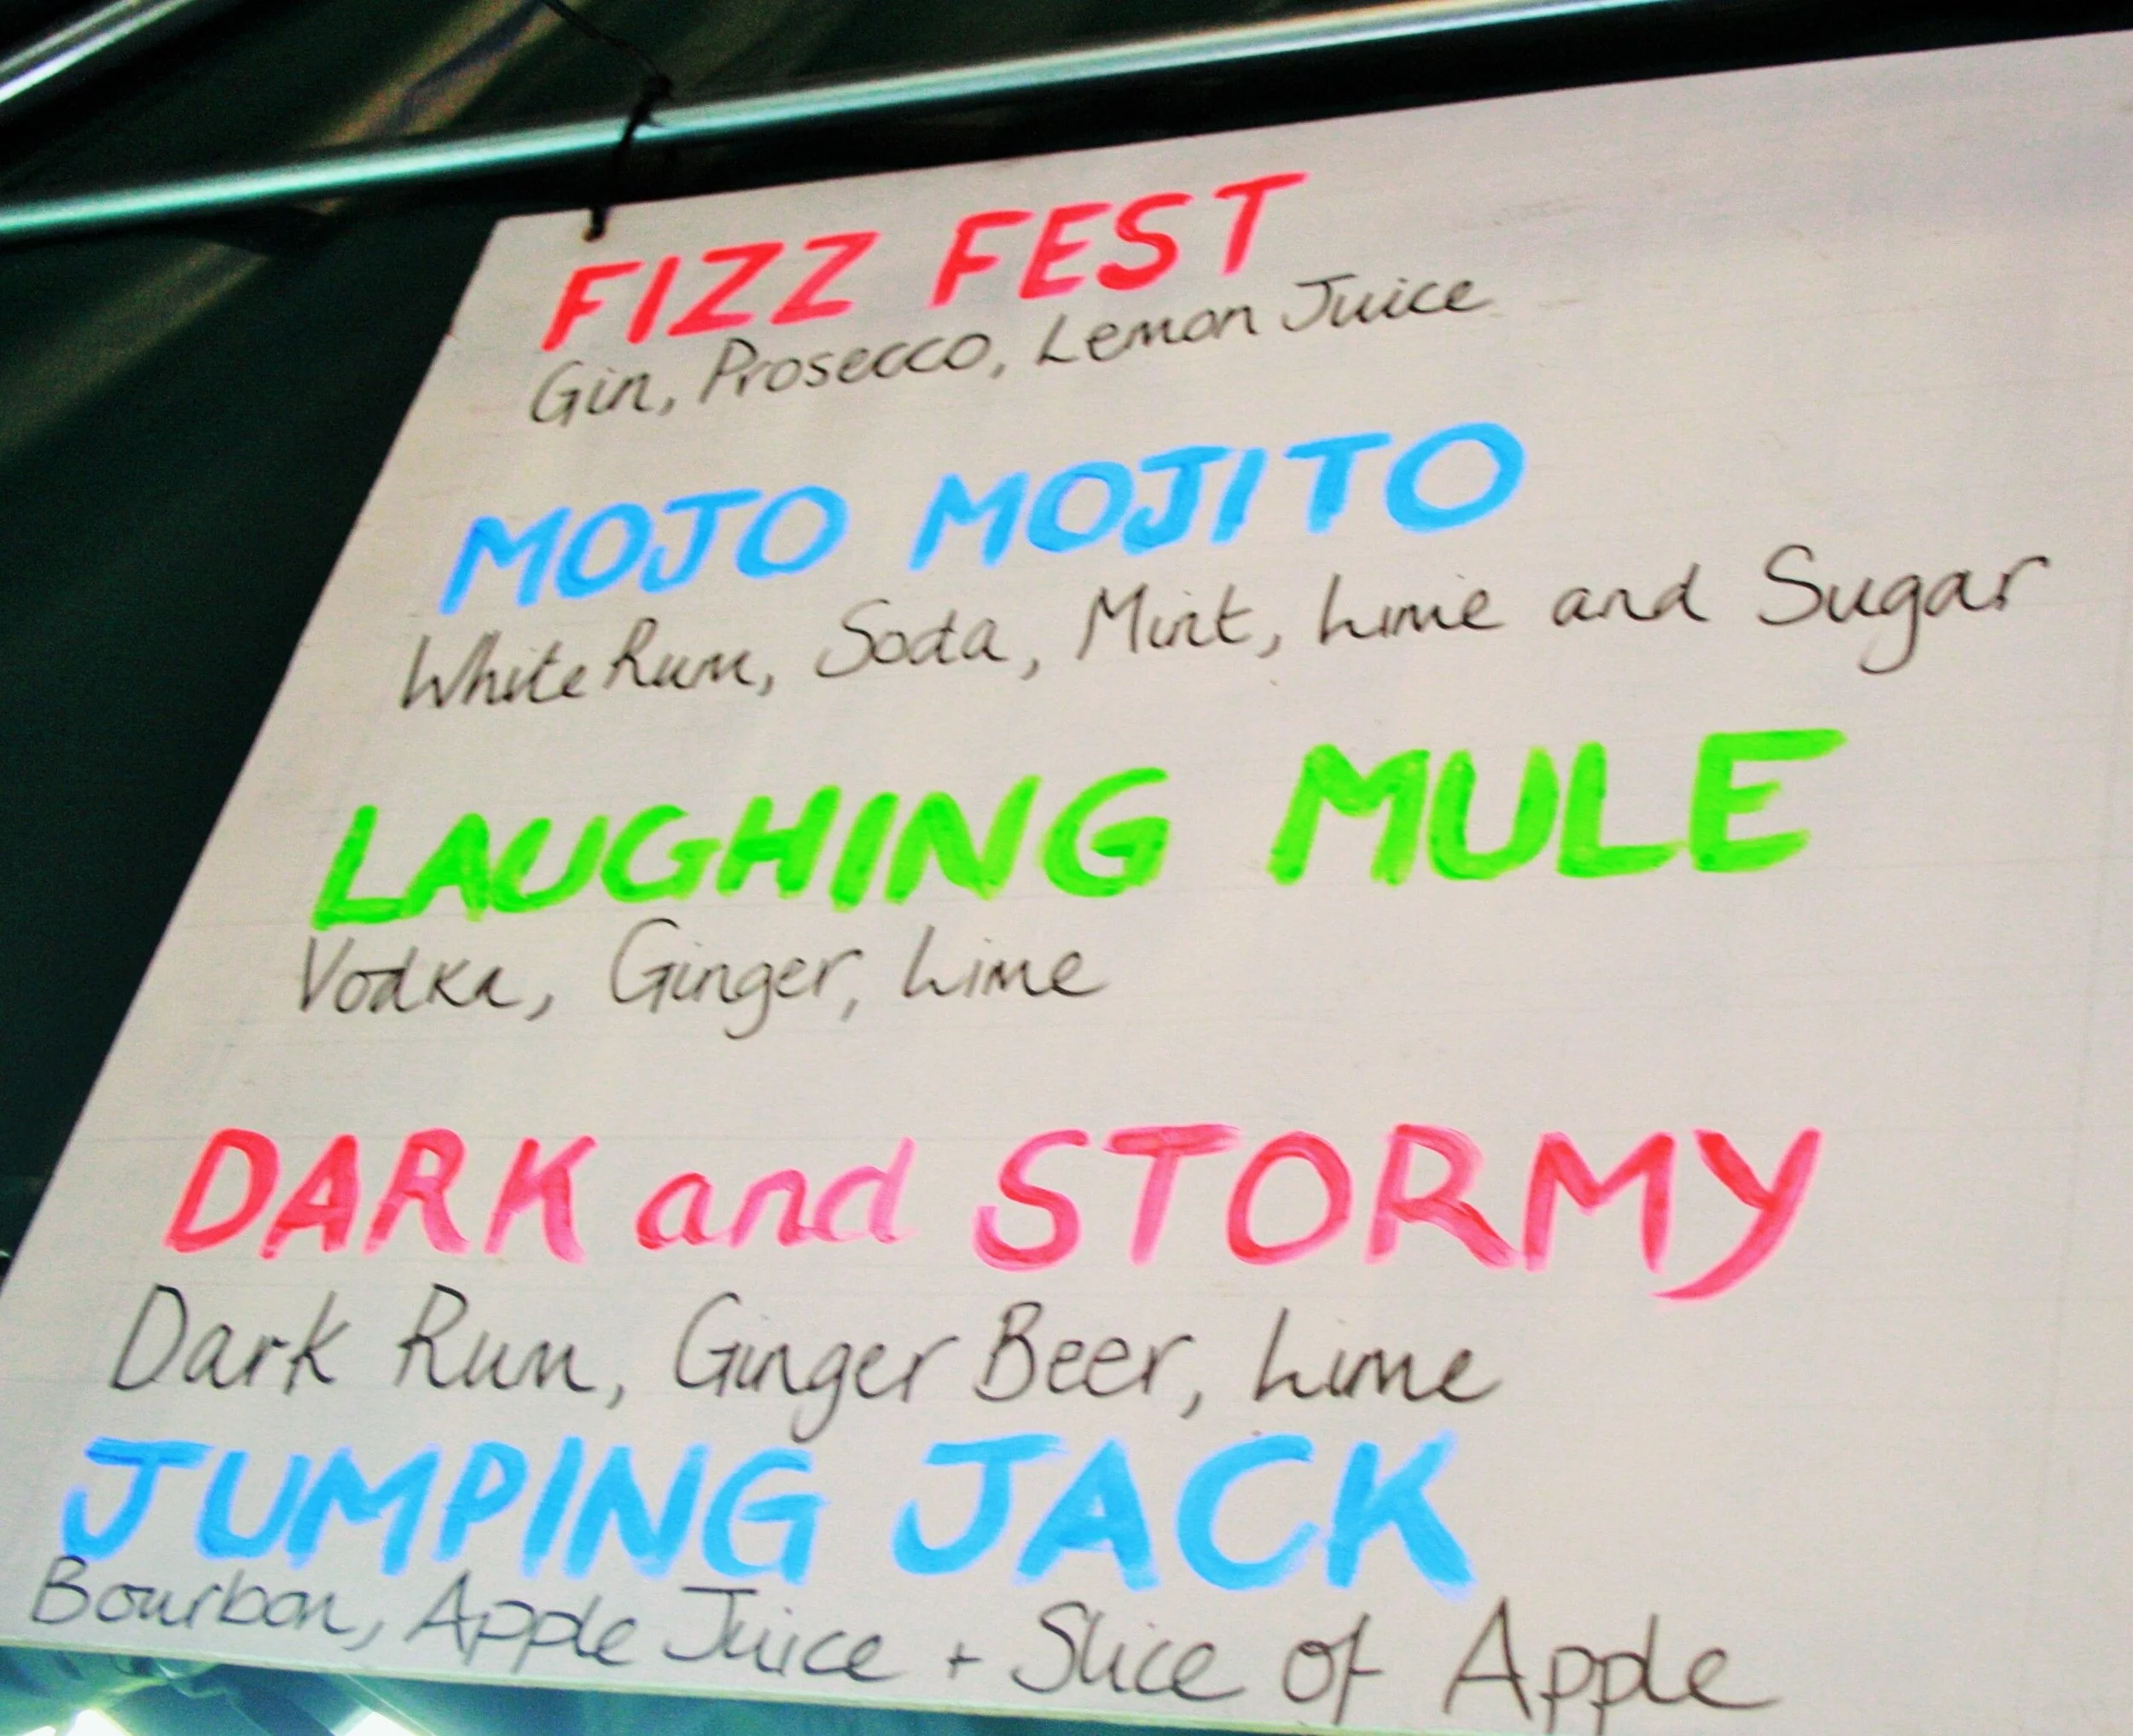 FIZZ FEST
Gin, Prosecco, Lemon Juice
MOJO MOJITO
White Rum, Soda, Mint, Lime and Sugar
LAUGHING MULE
Vodka, Ginger, Lime
DARK and STORMY
Dark Rum, Ginger Beer, Lime
JUMPING JACK
Bourbon, Apple Juice + Slice of Apple